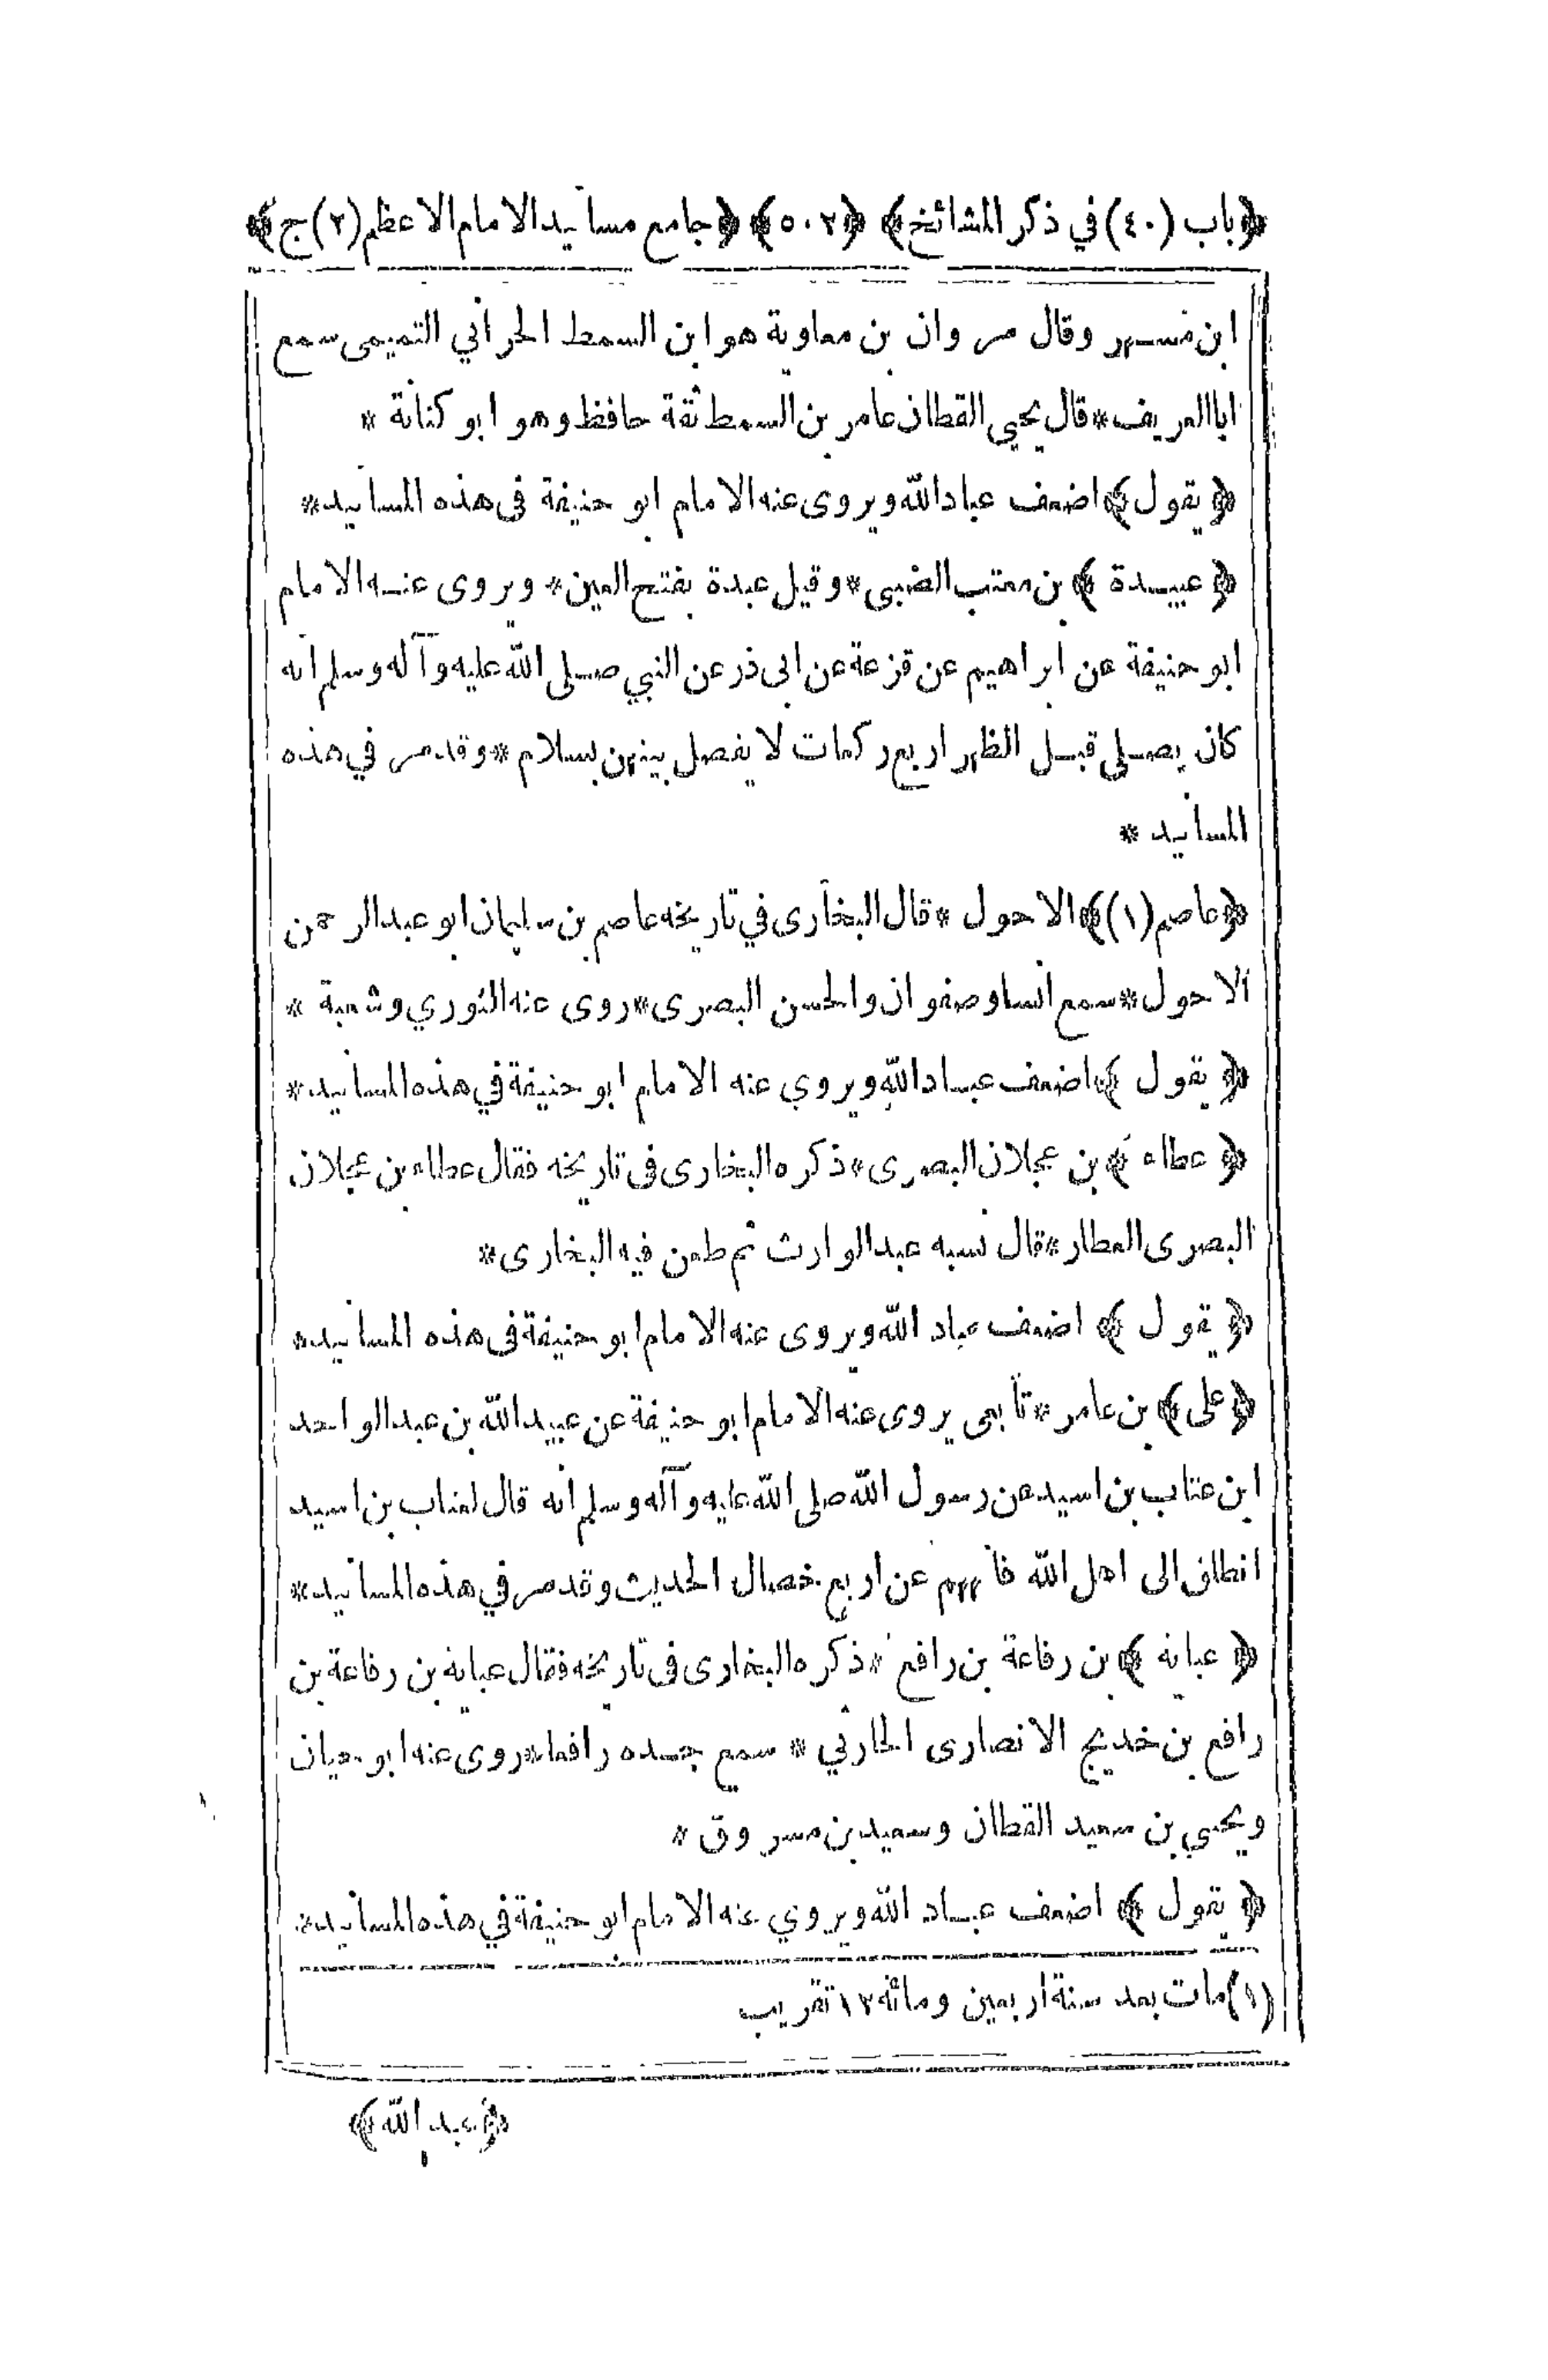 ﴿باب (٤٠) في ذكر المشائخ﴾ ﴿٥٠٢﴾ ﴿جامع مسانيد الامام الاعظم(٢)ج﴾
ابن مسهر وقال مروان بن معاوية هو ابن السمط الحراني التميمى سمع
ابا العريف * قال يحيي القطان عامر بن السمط ثقة حافظ وهو ابو كنانة *
﴿يقول﴾ اضعف عباد الله ويروى عنه الامام ابو حنيفة فى هذه المسانيد *
﴿عبيدة﴾ بن معتب الضبى * وقيل عبدة بفتح العين * ويروى عنه الامام
ابو حنيفة عن ابراهيم عن قزعة عن ابى ذر عن النبي صلى الله عليه وآله وسلم انه
كان يصلى قبل الظهر اربع ركعات لا يفصل بينهن بسلام * وقد مر في هذه
المسانيد *
﴿عاصم(١)﴾ الاحول * قال البخارى في تاريخه عاصم بن سليمان ابو عبد الرحمن
الاحول * سمع انسا وصفوان والحسن البصرى * روى عنه الثوري وشعبة *
﴿يقول﴾ اضعف عباد الله ويروي عنه الامام ابو حنيفة في هذه المسانيد *
﴿عطاء﴾ بن عجلان البصرى * ذكره البخارى فى تاريخه فقال عطاء بن عجلان
البصرى العطار * قال نسبه عبد الوارث ثم طعن فيه البخارى *
﴿يقول﴾ اضعف عباد الله ويروى عنه الامام ابو حنيفة فى هذه المسانيد *
﴿على﴾ بن عامر * تابعى يروى عنه الامام ابو حنيفة عن عبيد الله بن عبد الواحد
ابن عتاب بن اسيد عن رسول الله صلى الله عليه وآله وسلم انه قال لعتاب بن اسيد
انطلق الى اهل الله فانههم عن اربع خصال الحديث وقد مر في هذه المسانيد *
﴿عباية﴾ بن رفاعة بن رافع * ذكره البخارى فى تاريخه فقال عباية بن رفاعة بن
رافع بن خديج الانصارى الحارثي * سمع جده رافعا * روى عنه ابو حيان
ويحيي بن سعيد القطان وسعيد بن مسروق *
﴿يقول﴾ اضعف عباد الله ويروي عنه الامام ابو حنيفة في هذه المسانيد *
(١) مات بعد سنة اربعين ومائة ١٢ تقريب
﴿عبد الله﴾